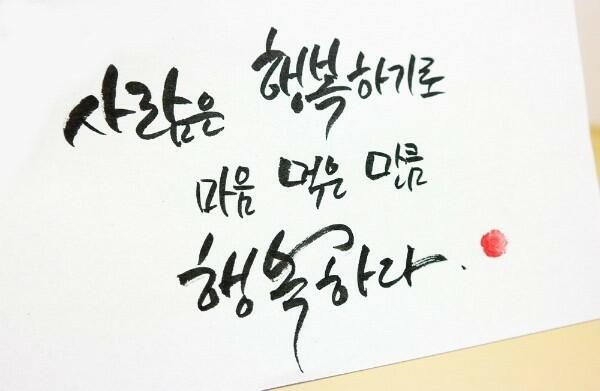 사람은 행복하기로
마음 먹은 만큼
행복하다.